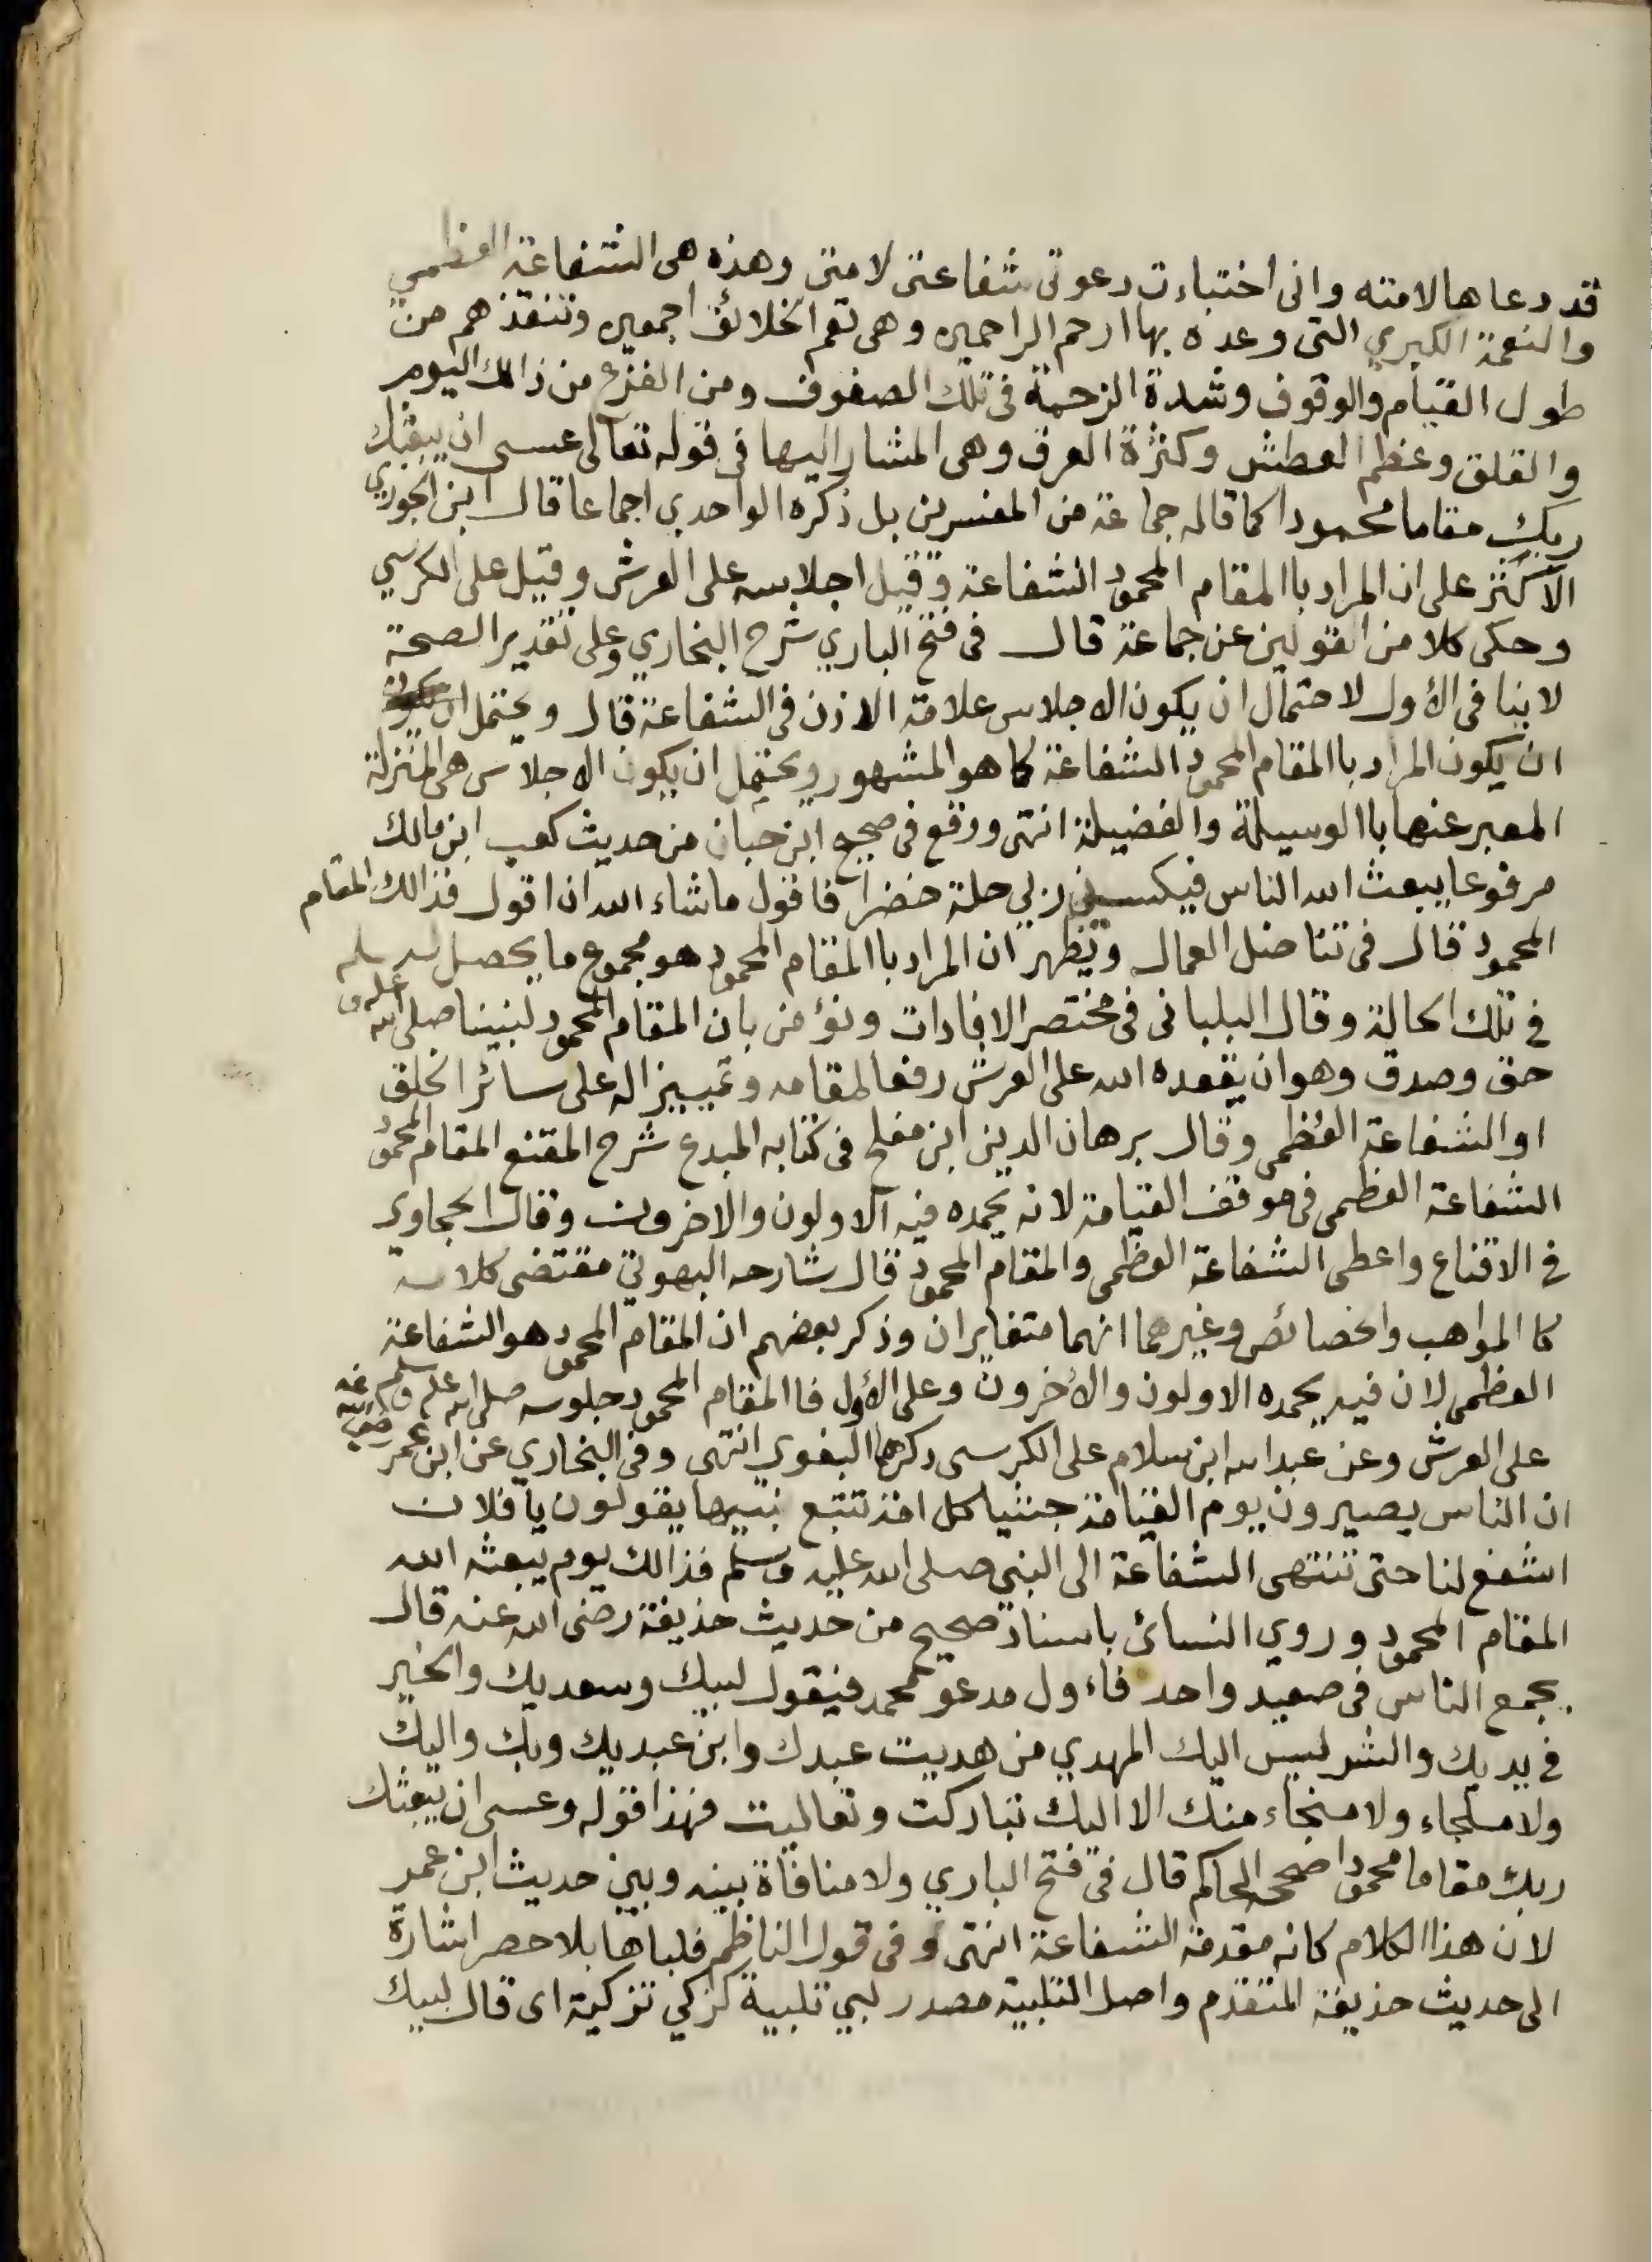 قد دعاها لامته وانى اختباءت دعوتى شفاعتى لامتى وهذه هى الشفاعة العظمي
والنعمة الكبري التى وعده بها ارحم الراحمين وهى تعم الخلائق اجمعين وتنقذهم من
طول القيام والوقوف وشدة الزحمة فى تلك الصفوف ومن الفزع من ذالك اليوم
والقلق وعظم العطش وكثرة العرق وهى المشار اليها فى قوله تعالى عسى ان يبعثك
ربك مقاما محمودا كما قاله جماعة من المفسرين بل ذكره الواحدي اجماعا قال ابن الجوزي
الأكثر على ان المراد باالمقام المحمود الشفاعة وقيل اجلاسه على العرش وقيل على الكرسي
وحكى كلا من القولين عن جماعة قال فى فتح الباري شرح البخاري وعلى تقدير الصحة
لا ينا فى الأول لاحتمال ان يكون الاجلاس علامة الاذن فى الشفاعة قال ويحتمل ان
ان يكون المراد باالمقام المحمود الشفاعة كما هو المشهور ويحتمل ان يكون الاجلاس هى المنزلة
المعبر عنها باالوسيلة والفضيلة انتهى ووقع فى صحيح ابن حبان من حديث كعب ابن مالك
مرفوعا يبعث الله الناس فيكسيني ربي حلة خضرا فاقول ماشاء الله ان اقول فذالك المقام
المحمود قال فى تناضل العمال ويظهر ان المراد باالمقام المحمود هو مجموع ما يحصل له
في تلك الحالة وقال البلبانى فى مختصر الافادات ونؤمن بان المقام المحمود لنبينا صلى الله عليه وسلم
حق وصدق وهو ان يقعده الله على العرش رفعا لمقامه وتمييزا له على سائر الخلق
او الشفاعة العظمى وقال برهان الدين ابن مفلح فى كتابه المبدع شرح المقنع المقام المحمود
الشفاعة العظمى فى موقف القيامة لانه يحمده فيه الاولون والاخرون وقال الحجاوي
في الاقناع واعطى الشفاعة العظمى والمقام المحمود قال شارحه البهوتي مقتضى كلامه
كا المواهب والخصائص وغيرهما انهما متغايران وذكر بعضهم ان المقام المحمود هو الشفاعة
العظمى لان فيه يحمده الاولون والأخرون وعلى الأول فا المقام المحمود جلوسه صلى الله عليه وسلم
على العرش وعن عبد الله ابن سلام على الكرسى ذكرهما البغوي انتهى وفى البخاري عن ابن عمر رضى الله عنه
ان الناس يصيرون يوم القيامة جثيا كل امة تتبع نبيها يقولون يا فلان
اشفع لنا حتى تنتهى الشفاعة الى النبي صلى الله عليه وسلم فذالك يوم يبعثه الله
المقام المحمود وروي النسائى باسناد صحيح من حديث حذيفة رضى الله عنه قال
يجمع الناس فى صعيد واحد فاءول مدعو محمد فيقول لبيك وسعديك والخير
في يديك والشر ليس اليك المهدي من هديت عبدك وابن عبديك وبك واليك
ولا ملجاء ولا منجاء منك الا اليك تباركت وتعاليت فهذا قوله وعسى ان يبعثك
ربك مقاما محمودا صححه الحاكم قال فى فتح الباري ولا منافاة بينه وبين حديث ابن عمر
لان هذا الكلام كانه مقدمة الشفاعة انتهى وفى قول الناظم فلباها بلا حصر اشارة
الى حديث حذيفة المتقدم واصل التلبية مصدر لبي تلبية كزكي تزكية اى قال لبيك